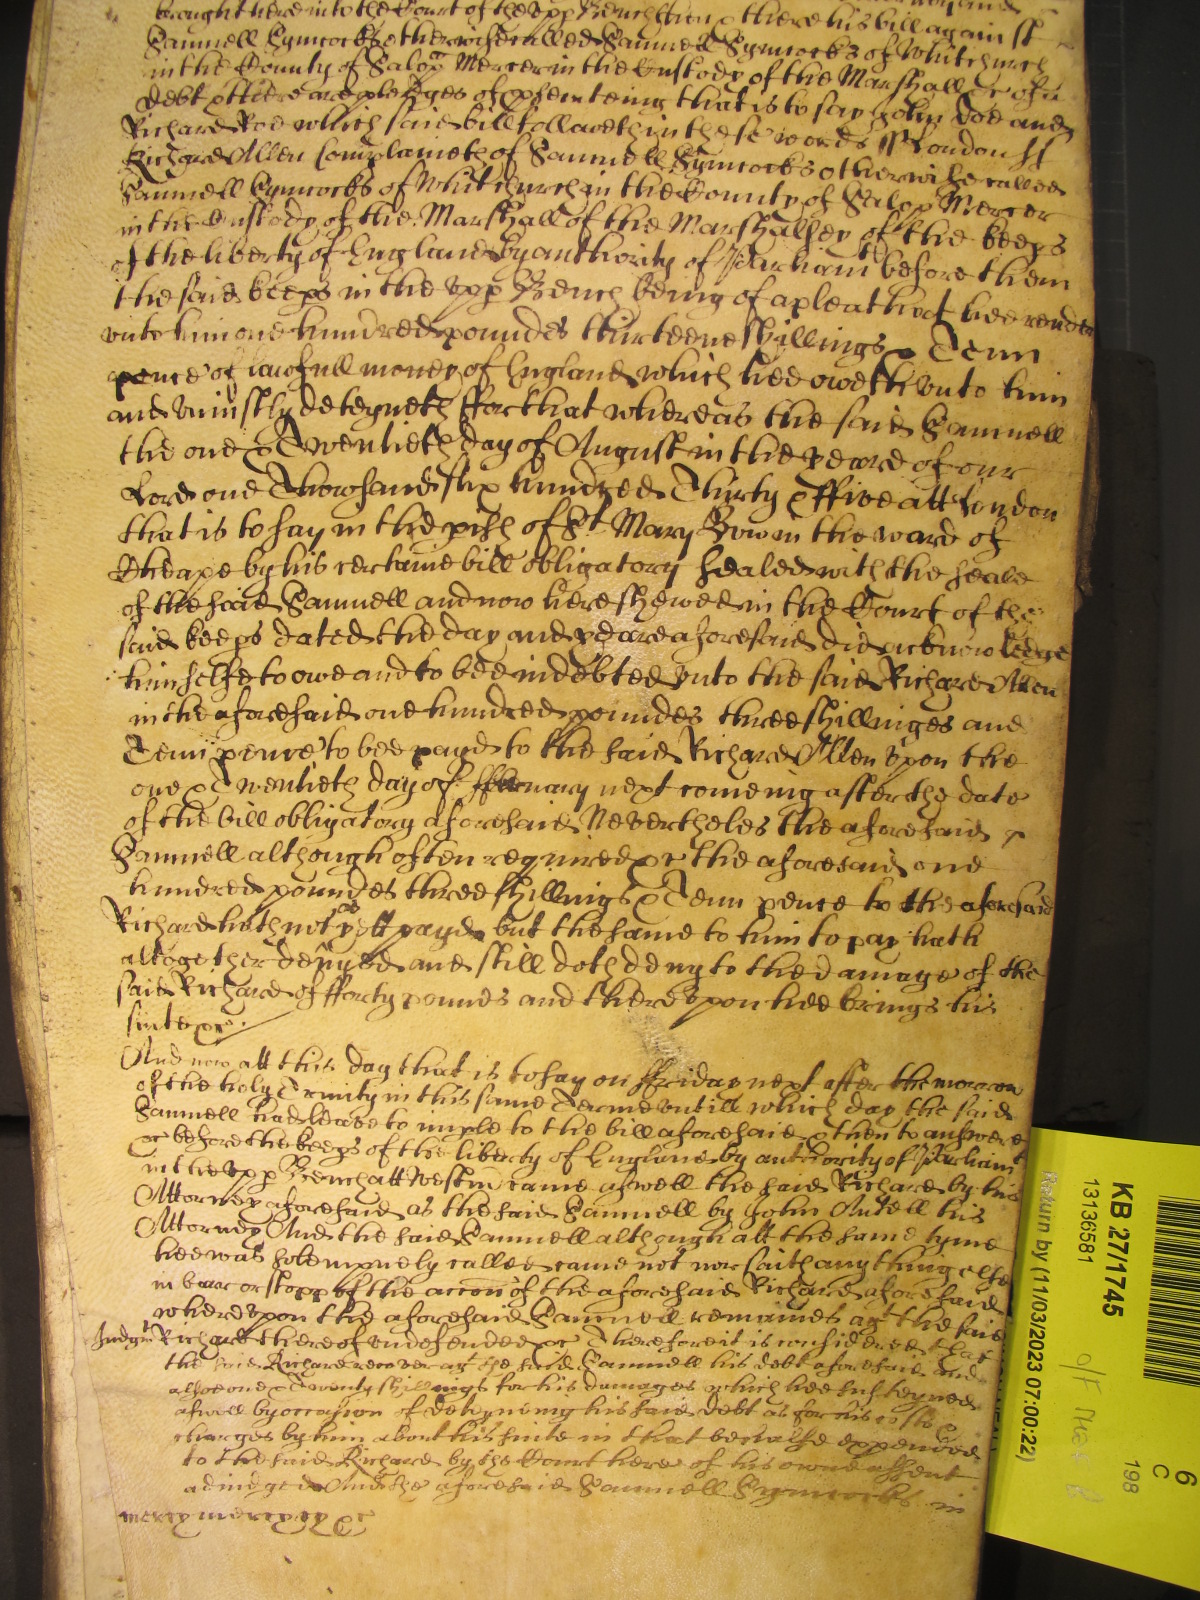 brought here into the Court of the upp Bench then & there his bill against
Samuell Symcocks otherwise called Samuell Symcocks of Whitchurch
in the County of Salop Mercer in the Custody of the Marshall &c of a
debt & there are pledges of psenteing that is to say John Doe and
Richard Roe which said bill followeth in these words ss London ss
Richard Allen complaineth of Samuell Symcocks otherwise called
Samuell Symcocks of Whitchurch in the County of Salop Mercer
in the Custody of the Marshall of the Marshalsey of the keeps
of the liberty of England by authority of Parliamt before them
the said keeps in the upp Bench being of a plea that hee render
unto him one hundred poundes thirteene shillings & Tenn
pence of lawfull money of England which hee oweth unto him
and uniustly deteyneth ffor that whereas the said Samuell
the one & Twentieth day of August in the yeare of our
Lord one Thowsand six hundred Thirty & ffive att London
that is to say in the pish of St Mary Bow in the ward of
Cheape by his certaine bill obligatory sealed with the seale
of the said Samuell and now here shewed in the Court of the
said keeps dated the day and yeare aforesaid did acknowledge
himselfe to owe and to bee indebted unto the said Richard Allen
in the aforesaid one hundred poundes three shillinges and
Tenn pence to bee payd to the said Richard Allen upon the
one & Twentieth day of ffebruary next comeing after the date
of the bill obligatory aforesaid Nevertheles the aforesaid
Samuell although often required &c the aforesaid one
hundred poundes three shillings & Tenn pence to the aforesaid
Richard hath not payd but the same to him to pay hath
altogether denyed and still doth deny to the damage of the
said Richard of fforty pounds and thereupon hee brings his
suite &c
And now att this day that is to say on ffriday next after the morrow
of the holy Trinity in this same Terme untill which day the said
Samuell had leave to imple to the bill aforesaid & then to answere
&c before the keeps of the liberty of England by authority of Parliamt
in the upp Bench att Westm came aswell the said Richard by his
Attorney aforesaid as the said Samuell by John Autell his
Attorney And the said Samuell although att the same tyme
hee was solempnely called came not nor saith any thing else
in barr or stopp of the accon of the aforesaid Richard aforesaid
whereupon the aforesaid Samuell remaines agt the said
Judgmt Richard thereof undefended &c Therefore it is considered that
the said Richard recover agt the said Samuell his debt aforesaid And
alsoe one & Twenty shillings for his damages which hee susteyned
aswell by occasion of deteyneing his said debt as for his costs &
charges by him about his suite in that behalfe expended
to the said Richard by the Court here of his owne assent
adiudged And the aforesaid Samuell Symcocks in
mercy mercy &c
KB 271/1745
13136581
Return by (11/03/2023 07:00:22)
6
C
198